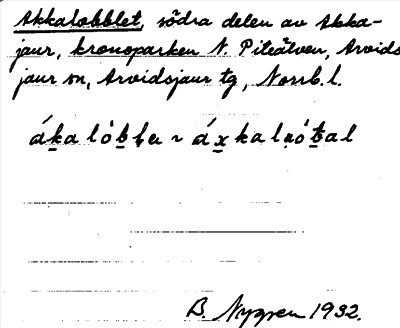 Akkalobblet, södra delen av Akka-
jaur, kronoparken N. Piteälven, Arvids
jaur sn, Arvidsjaur tg, Norrb. l.
B. Nygren 1932.